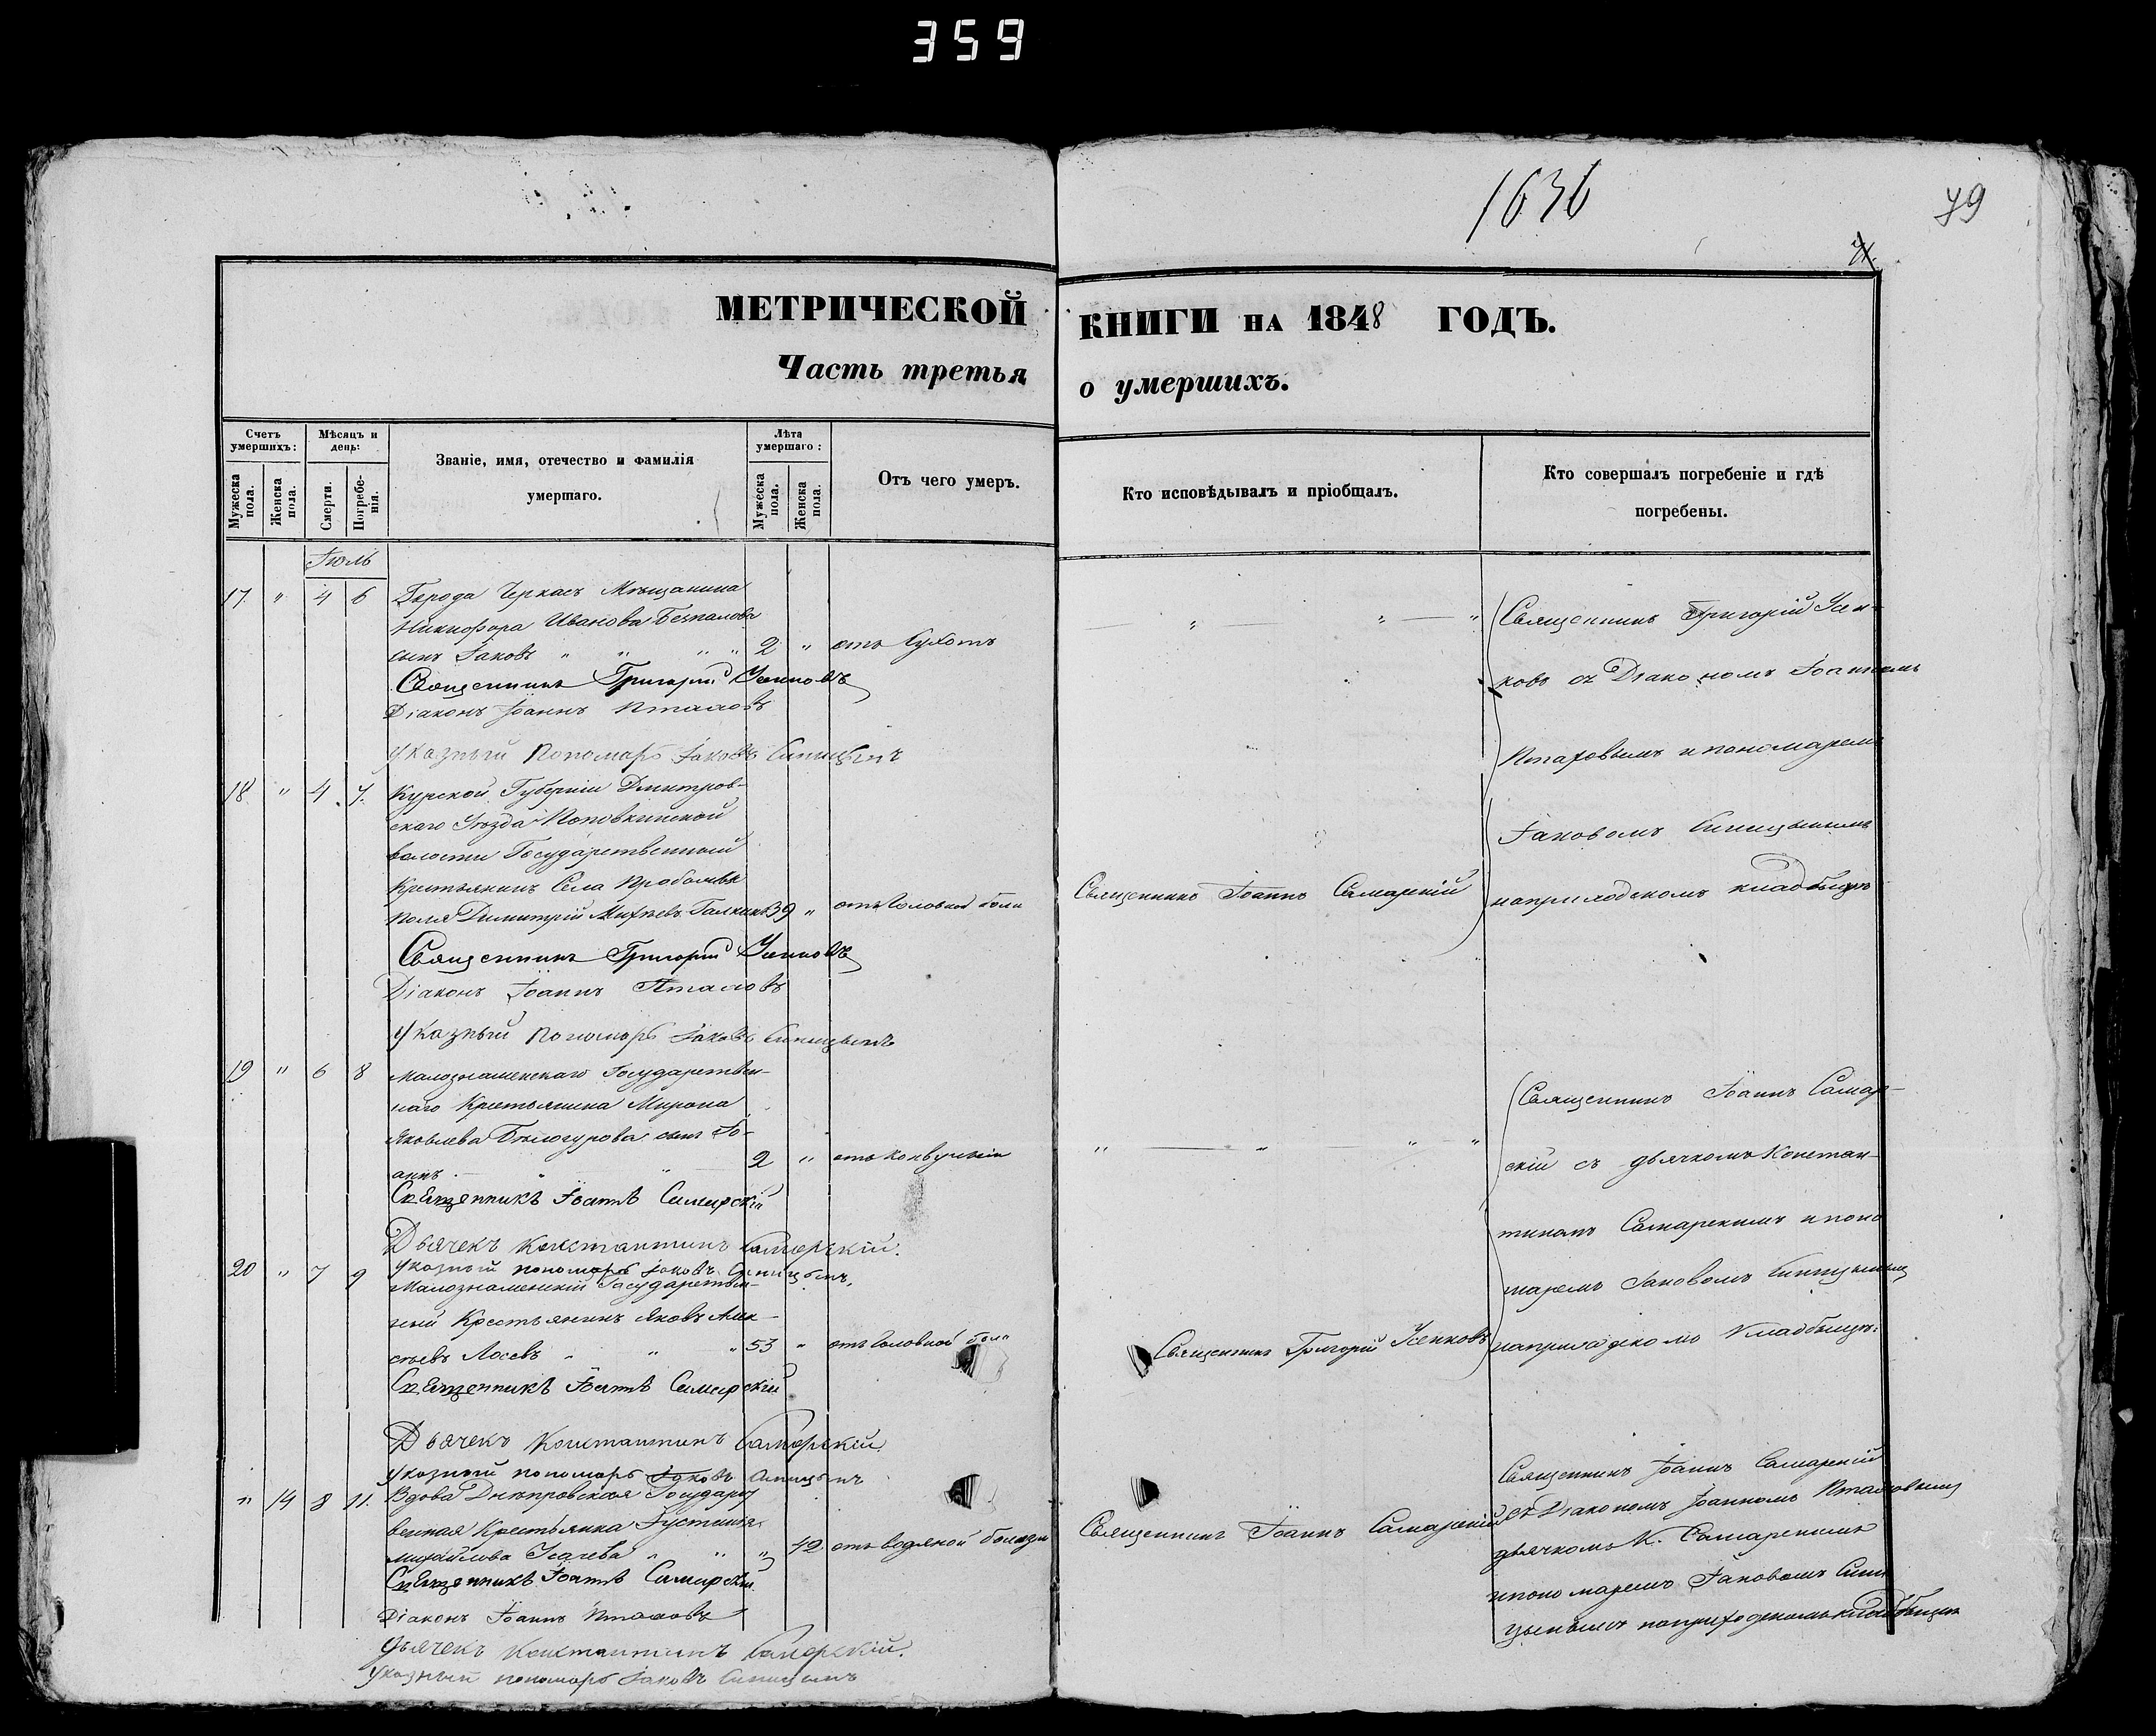 359
1636
79
МЕТРИЧЕСКОЙ КНИГИ НА 1848 ГОДЪ.
Часть третья о умершихъ.
Счетъ умершихъ:
Мужеска пола.
Женска пола.
Мѣсяцъ и день:
Смерти.
Погребе-нія.
Званіе, имя, отечество и фамилія умершаго.
Лѣта умершаго:
Мужеска пола.
Женска пола.
Отъ чего умеръ.
Кто исповѣдывалъ и пріобщалъ.
Кто совершалъ погребеніе и гдѣ погребены.
Іюль
17 " 4 6 Города Черкасъ Мѣщанина
Никифора Иванова Безпалова
сынъ Іаковъ " " " " 2 " отъ Сухотъ
Священникъ Григорій Усенковъ
Діаконъ Іоаннъ Птаховъ
Указный Пономарь Іаковъ Синицынъ
Священникъ Григорій Усен-
ковъ съ Діакономъ Іоанномъ
Птаховымъ и пономаремъ
Іаковомъ Синицынымъ
на приходскомъ кладбищѣ
18 " 4 7. Курской Губерніи Дмитров-
скаго Уѣзда
волости Государственный
Крестьянинъ Села
Поля Димитрій Михѣевъ Галкинъ 39 " отъ Головной боли
Священникъ Іоаннъ Самарскій
Священникъ Григорій Усенковъ
Діаконъ Іоаннъ Птаховъ
Указный Пономарь Іаковъ Синицынъ
19 " 6 8 Малознаменскаго Государствен-
наго Крестьянина Мирона
Яковлева Бѣлогурова сынъ Іо-
аннъ 2 " отъ Конвульсіи
Священникъ Іоаннъ Самарскій
Дьячекъ Константинъ Самарскій.
Указный пономарь Іаковъ Синицынъ.
Священникъ Іоаннъ Самар-
скій съ дьячкомъ Констан-
тиномъ Самарскимъ и поно
маремъ Іаковомъ Синицынымъ
на приходскомъ Кладбищѣ.
20 " 7 9 Малознаменскій Государствен-
ный Крестьянинъ Яковъ Алек-
сѣевъ Лосевъ " " " 53 " отъ Головной боли
Священникъ Григорій Усенковъ
Священникъ Іоаннъ Самарскій
Дьячекъ Константинъ Самарскій
Указный пономарь Іаковъ Синицынъ
" 14 8 11. Вдова Днѣпровская Государст
венная Крестьянка Іустинья
Михайлова " " " 42 отъ водяной болезни
Священникъ Іоаннъ Самарскій
Священникъ Іоаннъ Самарскій
Діаконъ Іоаннъ Птаховъ
Дьячекъ Константинъ Самарскій.
Указный пономарь Іаковъ Синицынъ
Священникъ Іоаннъ Самарскій
съ Діакономъ Іоанномъ Птаховымъ
дьячкомъ К. Самарскимъ
и пономаремъ Іаковомъ Сини
цынымъ на приходскомъ кладбищѣ